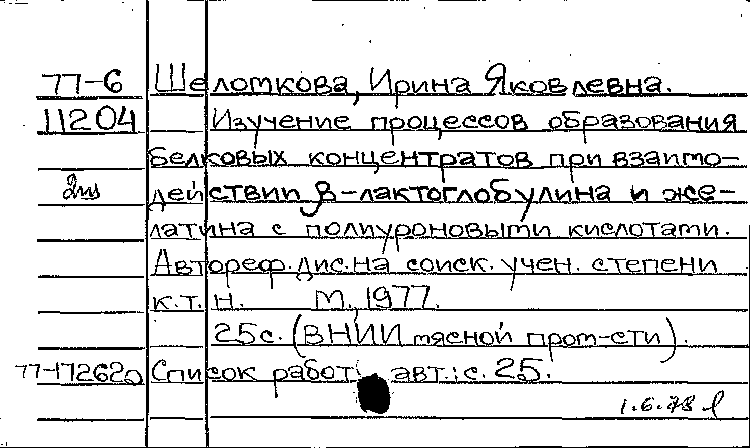 77-6 Шеломкова, Ирина Яковлевна.
11204 Изучение процессов образования
белковых концентратов при взаимо-
действии β-лактоглобулина и же-
латина с полиуроновыми кислотами.
Автореф. дис. на соиск. учен. степени
к.т.н. М, 1977.
25с. (ВНИИ мясной пром-сти).
77-17262о Список работ авт.: с. 25.
1.6.78